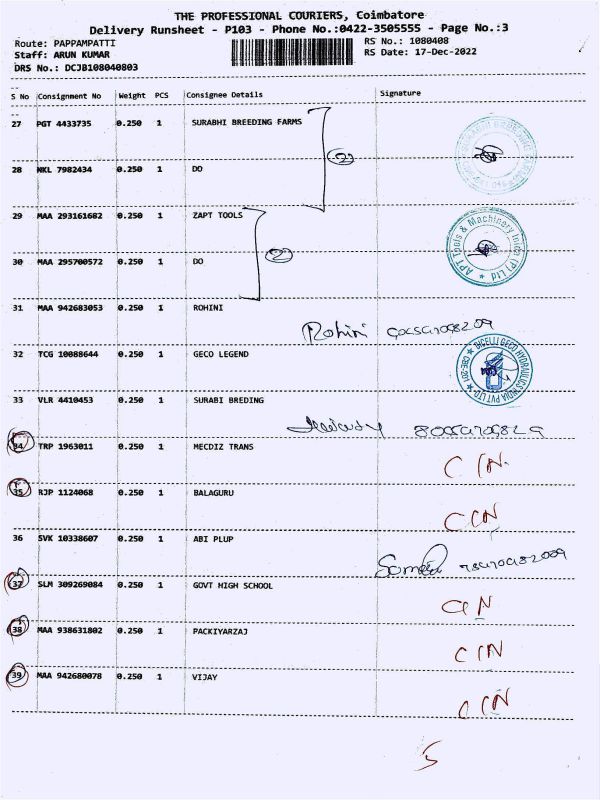 THE PROFESSIONAL COURIERS, Coimbatore
Delivery Runsheet - P103 - Phone No.:0422-3505555 - Page No.:3
Route: PAPPAMPATTI RS No.: 1080408
Staff: ARUN KUMAR RS Date: 17-Dec-2022
DRS No.: DCJB108040803
S No Consignment No Weight PCS Consignee Details Signature
27 PGT 4433735 0.250 1 SURABHI BREEDING FARMS
2
28 NKL 7982434 0.250 1 DO
29 MAA 293161682 0.250 1 ZAPT TOOLS
APT Tools & Machinery India (P) Ltd
2
30 MAA 295700572 0.250 1 DO
31 MAA 942683053 0.250 1 ROHINI
Rohini
32 TCG 10088644 0.250 1 GECO LEGEND
BICELLI GECO HYDRAULICS INDIA PVT LTD
33 VLR 4410453 0.250 1 SURABI BREDING
34 TRP 1963011 0.250 1 MECDIZ TRANS
CIN
35 RJP 1124068 0.250 1 BALAGURU
CIN
36 SVK 10338607 0.250 1 ABI PLUP
37 SLM 309269084 0.250 1 GOVT HIGH SCHOOL
CIN
38 MAA 938631802 0.250 1 PACKIYARZAJ
CIN
39 MAA 942680078 0.250 1 VIJAY
CIN
5